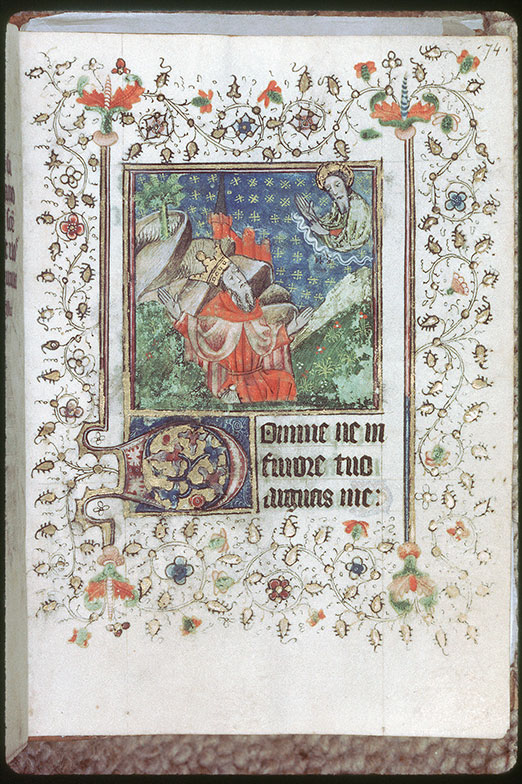 74
Domine ne in
furore tuo
arguas me: